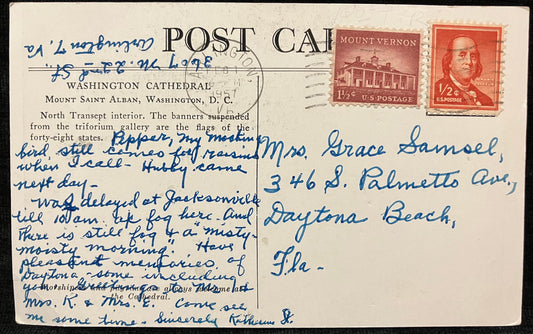 3609 N. 22nd St.
Arlington 7, Va
POST CARD
ARLINGTON
FEB
1957
MOUNT VERNON
1½¢ U.S. POSTAGE
½¢
U.S. POSTAGE
WASHINGTON CATHEDRAL
MOUNT SAINT ALBAN, WASHINGTON, D. C.
North Transept interior. The banners suspended
from the triforium gallery are the flags of the
forty-eight states.
Pepper, my mocking
bird, still comes for raisins
when I call - Hubby came
next day -
Was delayed at Jacksonville
till 10 am. fog here. And
there is still fog & a "misty-
moisty morning". Have
pleasant memories of
Daytona - some including
you. Greetings to Mr. and
Mrs. K. & Mrs. E. Come see
me some time - Sincerely Katherine
always welcome at
the Cathedral.
Mrs. Grace Samsel,
346 S. Palmetto Ave.,
Daytona Beach,
Fla-